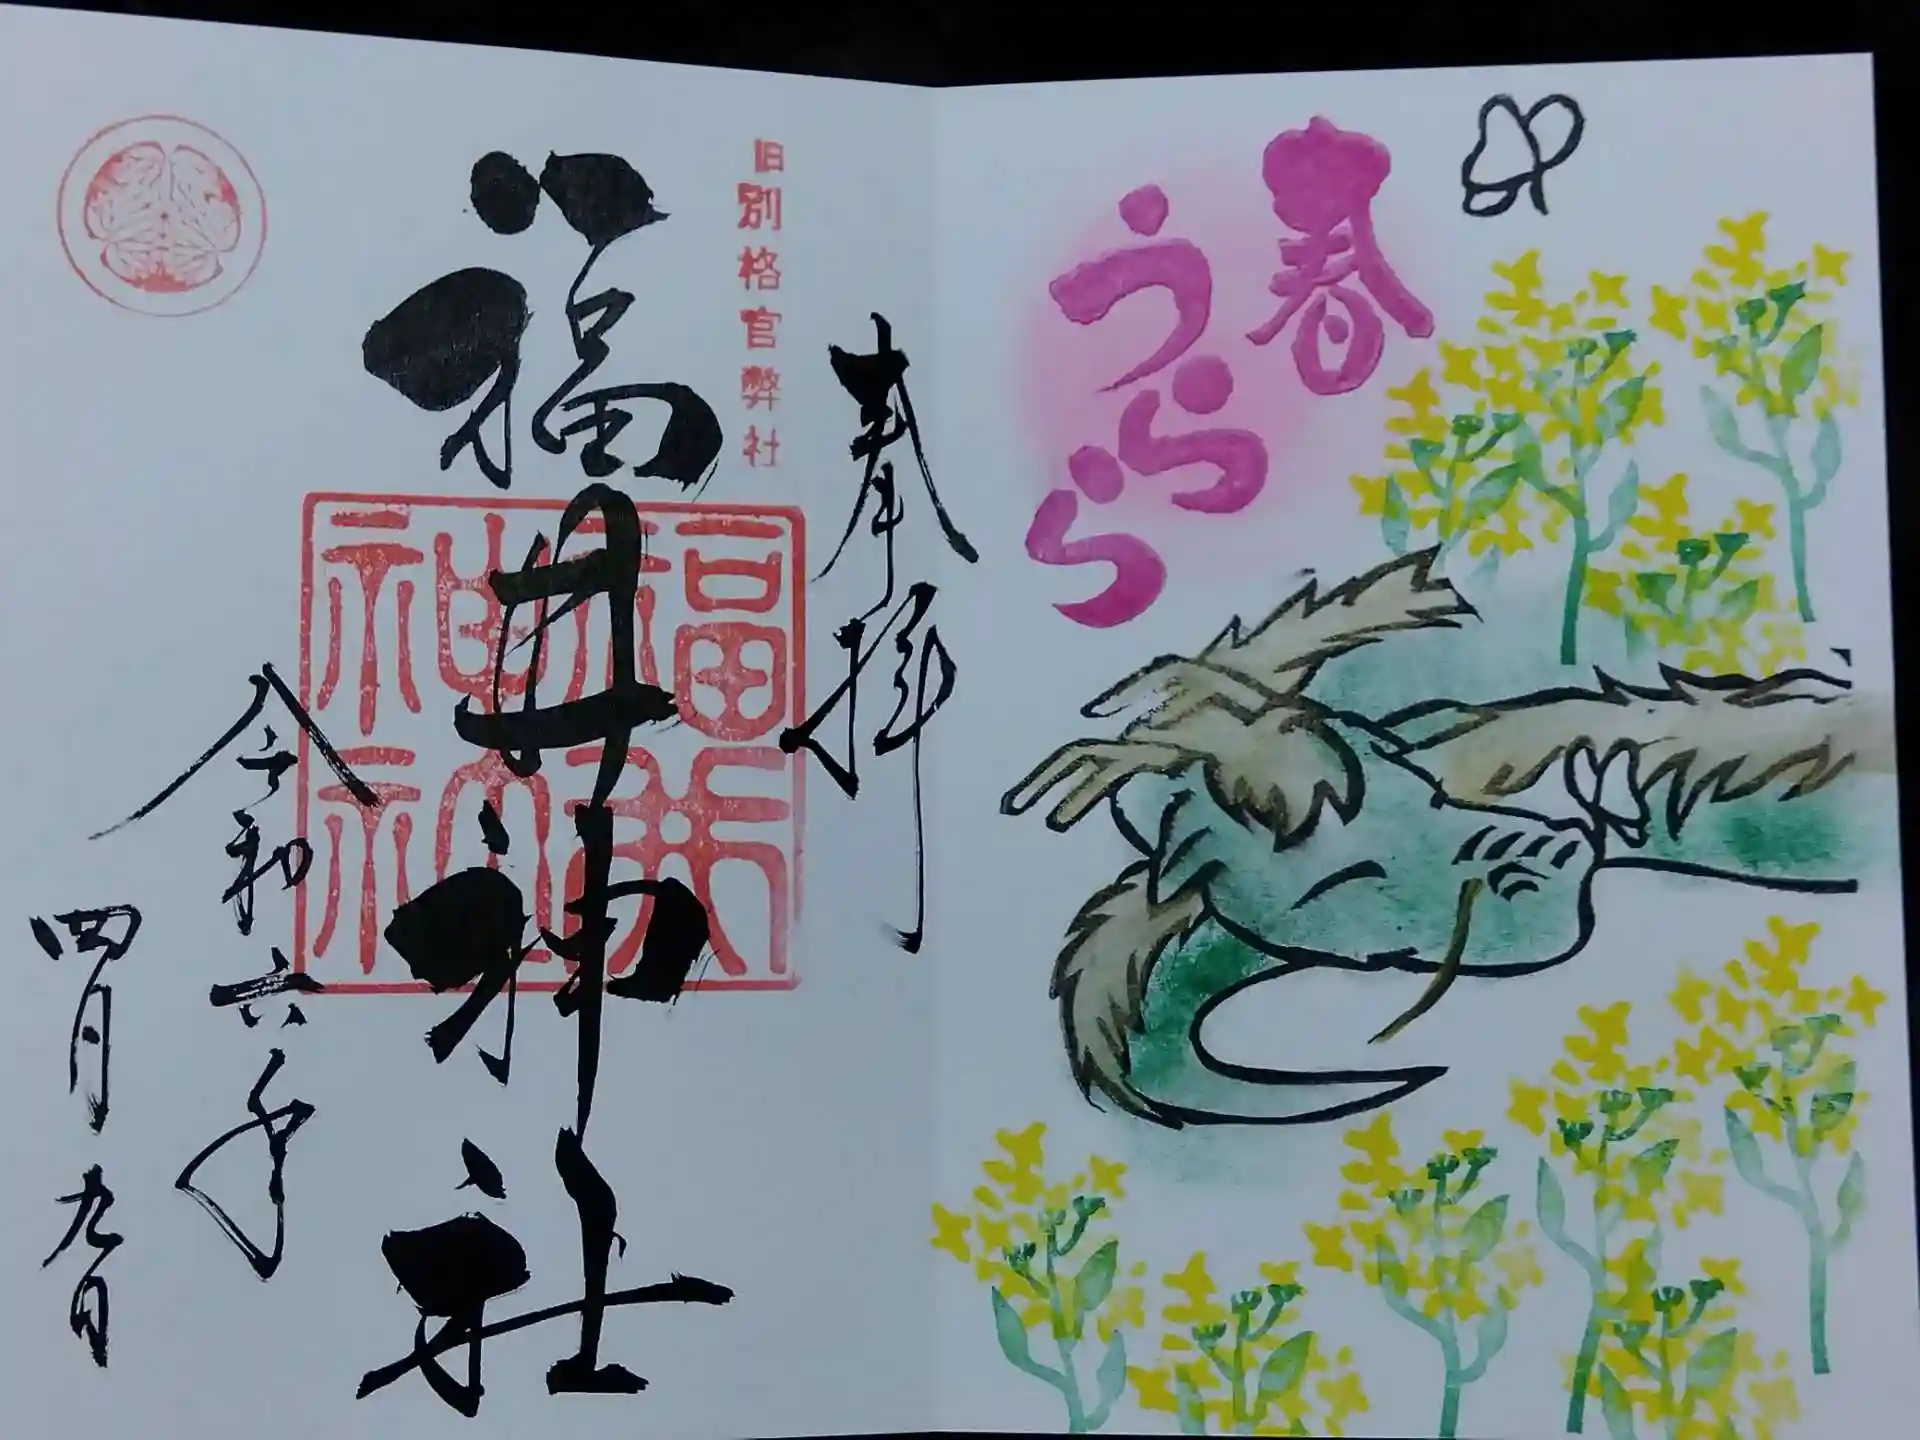 春
うらら
奉拝
旧別格官弊社
福井神社
福井
神社
令和六年
四月九日